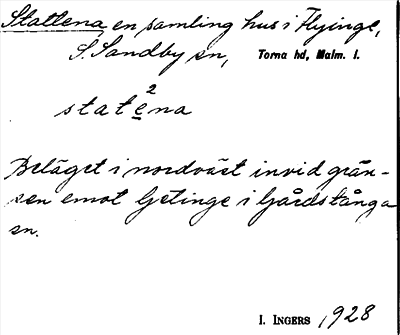 Stattena en samling hus i Flyinge,
S. Sandby sn, Torna hd, Malm. l.
2
statena
Beläget i nordväst invid grän-
sen emot Getinge i Gårdstånga
sn.
I. INGERS 1928